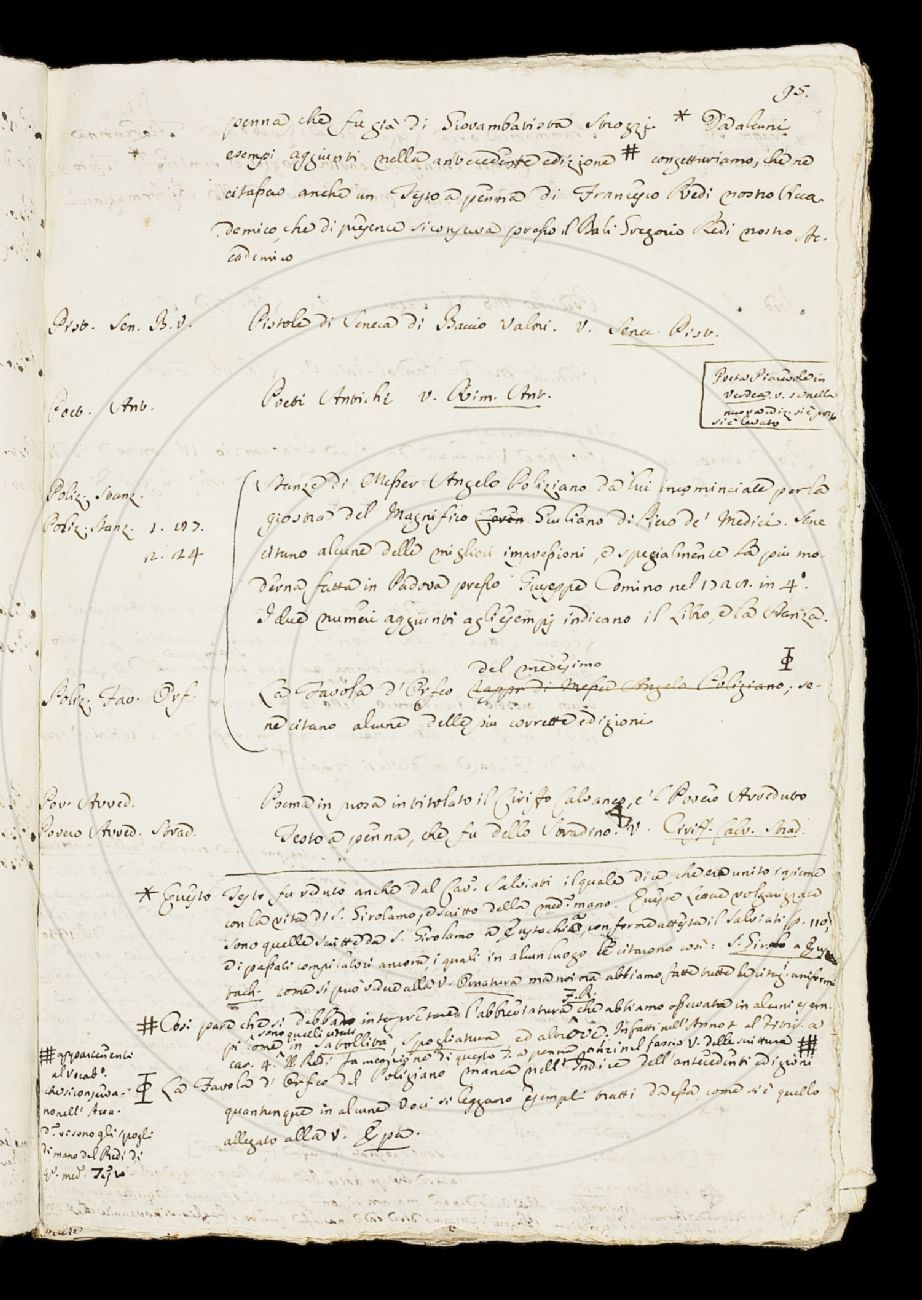 95.
penna che fu già di Giovambatista Strozzi * Da alcuni
esempi aggiunti nella antecedente edizione # congetturiamo, che ne
citassero anche un Testo a penna di Francesco Redi nostro Acca-
demico, che di presente si conserva presso il Balì Gregorio Redi nostro Ac-
cademico
Pist. Sen. B. V. Pistole di Seneca di Baccio Valori. v. Senec. Pist.
Poet. Ant. Poeti Antichi v. Rim. Ant.
Poeta Piacevole in
verdea. v. se nella
nuova ediz. si è
si è levato
Poliz. Stanz. Stanze di Messer Angelo Poliziano da lui incominciate per la
Poliz. Stanz. 1. giostra del Magnifico Giuliano di Piero de' Medici. Sene
2. 24 citano alcune delle migliori impressioni, e spezialmente la più mo-
derna fatta in Padova presso Giuseppe Comino nel in 4°.
I due numeri aggiunti agli esempj indicano il Libro, e la Stanza.
del medesimo
Poliz. Fav. Orf. La Favola d'Orfeo di Messer Angelo Poliziano; se-
ne citano alcune delle più corrette edizioni
Pov. Avved. Poema in prosa intitolato il Ciriffo Calvaneo, e 'l Povero Avveduto
Povero Avved. Strad. Testo a penna, che fu dello Stradino. v. Ciriff. Calv. Strad.
* Questo Testo fu veduto anche dal Cav. Salviati il quale dice che era unito insieme
con la vita di S. Girolamo, e scritto della med.ª mano. Queste
sono quelle scritte da S. Girolamo a Eustochia, conforme attesta il Salviati p. 110,
di passati compilatori ancora, i quali in alcun luogo le citarono così: S. Girol. a Eus
tach. come si può vedere alla v. Ornatura ma noi ora abbiamo fatte tutte le citaz. uniformi
# Così pare che si debbano interpretare l'abbreviatura T. R. che abbiamo osservata in alcuni esem-
pi come sono quelli in Satollità, Spogliatura, ed altrove. Infatti nell'Annot. al Ditir. a
car. 4. il Redi fa menzione di questo T. a penna, nel fascio v. delle scritture ##
## appartenenti
al Vocab.º
che si conserva-
no nell' Acca-
d.ª vi sono gli spogli
di mano del Redi di
q.º med.º Testo
Φ La Favola d'Orfeo del Poliziano manca nell'Indice dell'antecedenti edizioni
quantunque in alcune voci si leggano esempli tratti da essa come si è quello
allegato alla v. Epa.